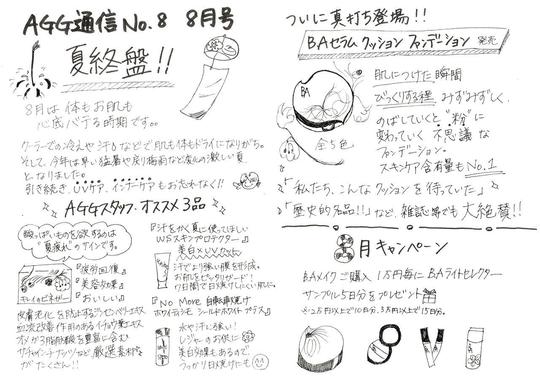 AGG通信 No.8 8月号
夏終盤!!
8月は体もお肌も
心底バテる時期です。。
クーラーでの冷えや汗もなどで肌も体もドライになりがち。
そして、今年は早い猛暑や戻り梅雨など変化の激しい夏
となりました。
引き続き、UVケア、インナーケアもお忘れなく!!
AGGスタッフ・オススメ3品
酸っぱいものを欲するのは
"夏疲れ"のサインです。
キレイのビネガー
『疲労回復』
『美容効果』
『おいしい』
皮膚老化を防止する
血流改善作用のあるイチョウ葉エキス
を豊富に含む
サチャインチナッツなど厳選素材
がたくさん!!
『汗をかく夏に使ってほしい
WSスキンプロテクター』
美白×UVカット
汗でより強い膜を形成。
お肌をピッタリガード!
『NO MORE 自転車焼け
ホワイティシモ シールドホワイト プラス』
水や汗に強い!
レジャーのお供に
美白効果もあるので、
うっかり日焼けにも
ついに真打ち登場!!
BAセラム クッション ファンデーション 発売
BA
全5色
肌につけた瞬間
びっくりする程、みずみずしく、
のばしていくと"粉"に
変わっていく不思議な
ファンデーション。
スキンケア含有量もNo.1
「私たち、こんなクッションを待っていた」
「歴史的名品!!」など、雑誌等でも大絶賛!!
8月キャンペーン
BAメイクご購入1万円毎にBAライトセレクター
サンプル5日分をプレゼント
※2万円以上で10日分、3万円以上で15日分。